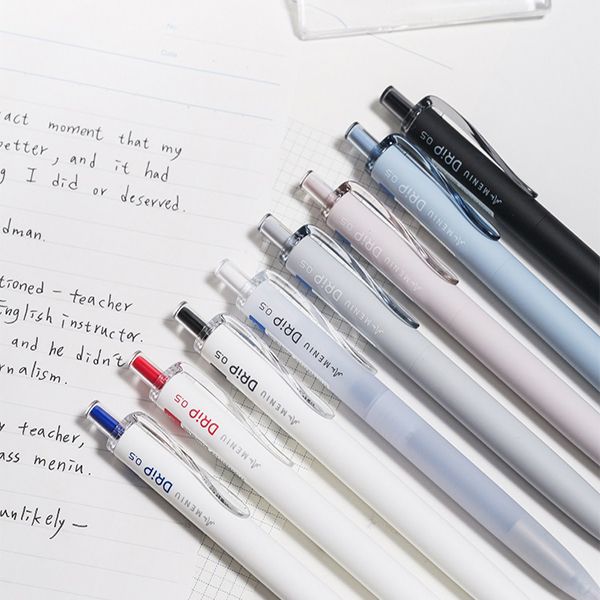 No.
Date
act moment that my
better, and it had
I did or deserved.
dman.
tioned - teacher
English instructor.
and he didn't
rnalism.
y teacher,
ass meniu.
unlikely —
A-MENIU DRiP 0.5
A-MENIU DRiP 0.5
A-MENIU DRiP 0.5
A-MENIU DRiP 0.5
A-MENIU DRiP 0.5
A-MENIU DRiP 0.5
A-MENIU DRiP 0.5
A-MENIU DRiP 0.5